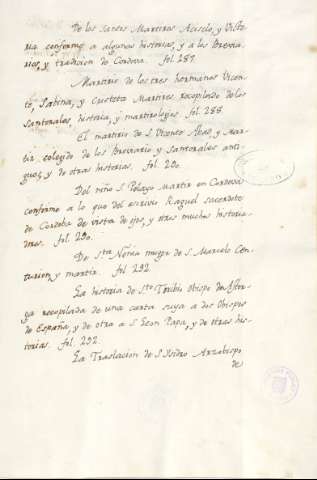 De los Santos Martires Acisclo, y Victo-
ria conforme a algunas historias, y a los Brevia-
rios, y tradicion de Cordova. fol. 287.
Martirio de los tres hermanos Vicen-
te, Sabina, y Cristeta Martires recopilado de los
Santorales, historia, y martirologios. fol. 288.
El martirio de S. Vicente Abad, y Mar-
tir colegido de los Breviario y Santorales anti-
guos, y de otras historias. fol. 290.
Del niño S. Pelayo Martir en Cordova
conforme a lo que del escrivio Raguel sacerdote
de Cordoba de vista de ojos, y otros muchos historia-
dores. fol. 290.
De Sta Nonia muger de S. Marcelo Cen-
turion, y martir. fol. 292.
La historia de Sto Toribio obispo de Astor-
ga recopilada de una carta suya a dos Obispos
de España, y de otra a S. Leon Papa, y de otras his-
torias. fol. 292.
La Traslacion de S. Isidro Arzobispo
de